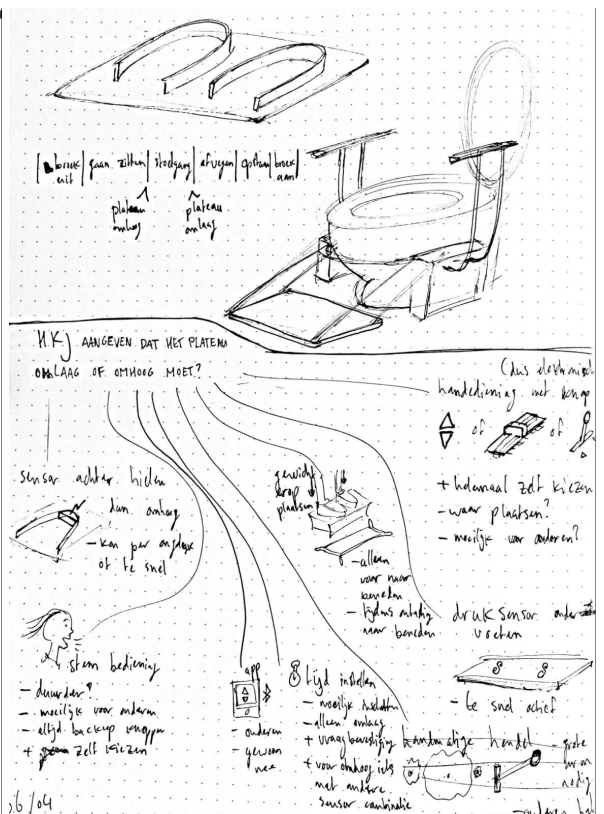 broek | gaan zitten | stoelgang | afvegen | opstaan | broek
uit aan
plateau
omhoog
plateau
omlaag
HKJ AANGEVEN DAT HET PLATEAU
OMLAAG OF OMHOOG MOET?
(dus elektronisch
handediening met knop
of of
+ helemaal zelf kiezen
- waar plaatsen?
- moeilijk voor anderen?
sensor achter hielen
dan omhoog
- kan per ongeluk
of te snel
gewicht
erop
plaatsen
- alleen
voor naar
beneden
- tijdens
naar beneden
druksensor onder
voeten
- te snel actief
stem bediening
- duurder?
- moeilijk voor anderen
- altijd backup knoppen
+ zelf kiezen
app
- onderen
- gewoon
nee
tijd instellen
- moeilijk inschatten
- alleen omlaag
+ vraag bevestiging
+ voor omhoog iets
met andere
sensor combinatie
handmatige hendel
- grote
nodig
26/04